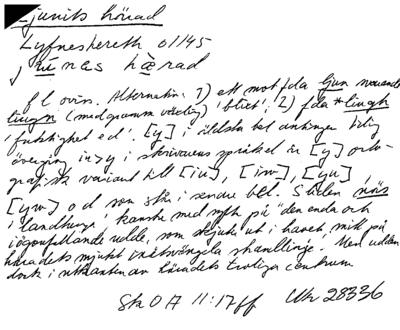 Ljunits härad
Lyfneshereth 01145
j únæs hærad
fl ovin. Alternativ: 1) ett mot fda ljun svarande
liugn (med gramm växling) 'blixt'; 2) fda *liugh
'fuktighet ed'. [y] i äldsta bel antingen tidig
övergång iu>y i skrivarens språk el är [y] orto-
grafisk variant till [iu], [iw], [yu],
[yw] od som står i senare bel. S leden näs
i landhöjd, kanske med syfte på den enda och
iögonfallande udde, som skjuter ut i havet mitt på
häradets mjukt insvängda strandlinje. Men udden
dock i utkanten av häradets troliga centrum
Sk O A 11:17ff